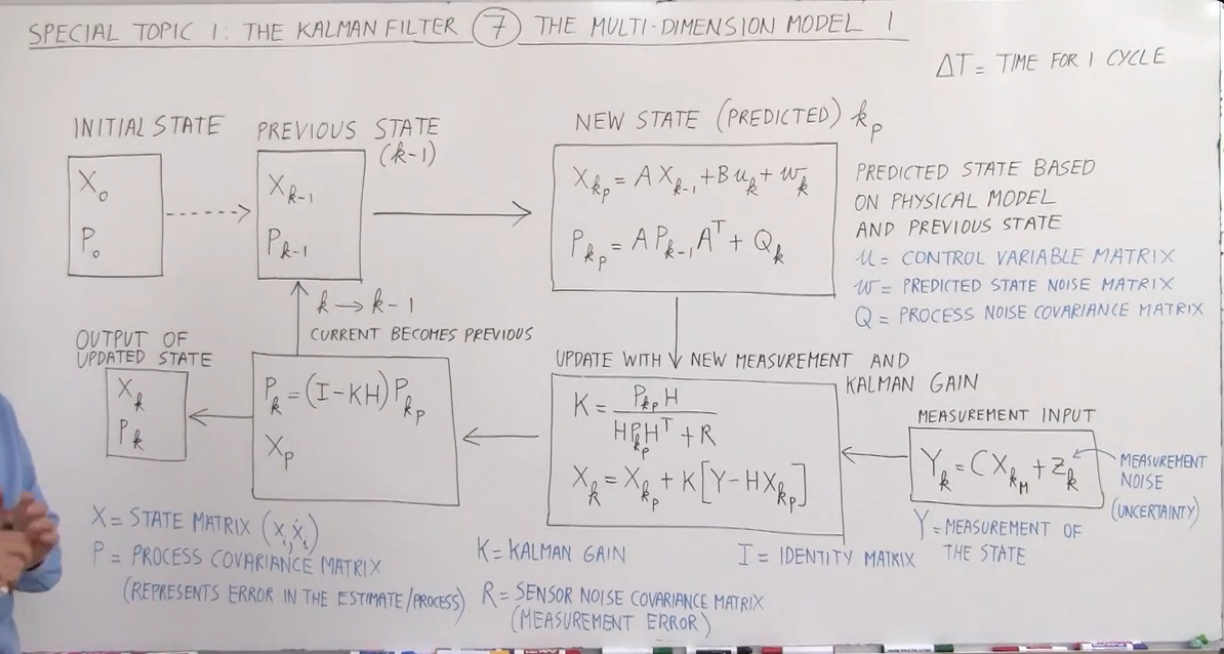 SPECIAL TOPIC 1: THE KALMAN FILTER (7) THE MULTI-DIMENSION MODEL 1
ΔT = TIME FOR 1 CYCLE
INITIAL STATE
X₀
P₀
PREVIOUS STATE
(k-1)
X_{k-1}
P_{k-1}
NEW STATE (PREDICTED) k_p
X_{k_p} = A X_{k-1} + B u_k + w_k
P_{k_p} = A P_{k-1} A^T + Q_k
PREDICTED STATE BASED
ON PHYSICAL MODEL
AND PREVIOUS STATE
u = CONTROL VARIABLE MATRIX
w = PREDICTED STATE NOISE MATRIX
Q = PROCESS NOISE COVARIANCE MATRIX
k → k-1
CURRENT BECOMES PREVIOUS
OUTPUT OF
UPDATED STATE
X_k
P_k
P_k = (I-KH) P_{k_p}
X_p
UPDATE WITH NEW MEASUREMENT AND
KALMAN GAIN
K = P_{k_p} H / H P_{k_p} H^T + R
X_k = X_{k_p} + K [Y - H X_{k_p}]
MEASUREMENT INPUT
Y_k = C X_{k_M} + Z_k
MEASUREMENT
NOISE
(UNCERTAINTY)
Y = MEASUREMENT OF
THE STATE
X = STATE MATRIX (x_i, ẋ_i)
P = PROCESS COVARIANCE MATRIX
(REPRESENTS ERROR IN THE ESTIMATE/PROCESS)
K = KALMAN GAIN
I = IDENTITY MATRIX
R = SENSOR NOISE COVARIANCE MATRIX
(MEASUREMENT ERROR)